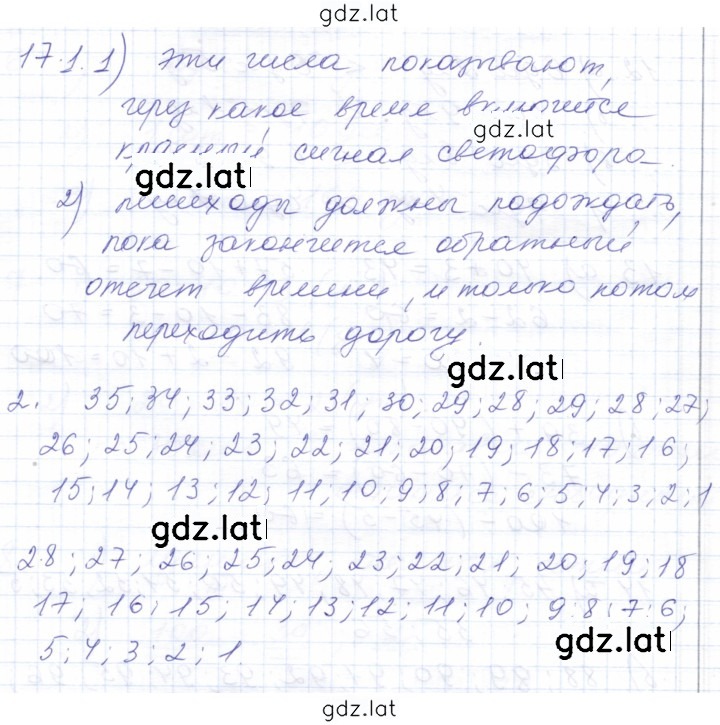 gdz.lat
17.1.1) Эти числа показывают,
через какое время включится
gdz.lat
сигнал светофора.
gdz.lat
2) пешеходы должны подождать,
пока закончится обратный
отсчет времени, и только потом
переходить дорогу.
gdz.lat
2. 35; 34; 33; 32; 31; 30; 29; 28; 29; 28; 27;
26; 25; 24; 23; 22; 21; 20; 19; 18; 17; 16;
15; 14; 13; 12; 11, 10; 9; 8; 7; 6; 5; 4; 3; 2; 1
gdz.lat
28; 27; 26; 25; 24; 23; 22; 21; 20; 19; 18
17; 16; 15; 14; 13; 12; 11; 10; 9; 8; 7; 6;
gdz.lat
5; 4; 3; 2; 1.
gdz.lat